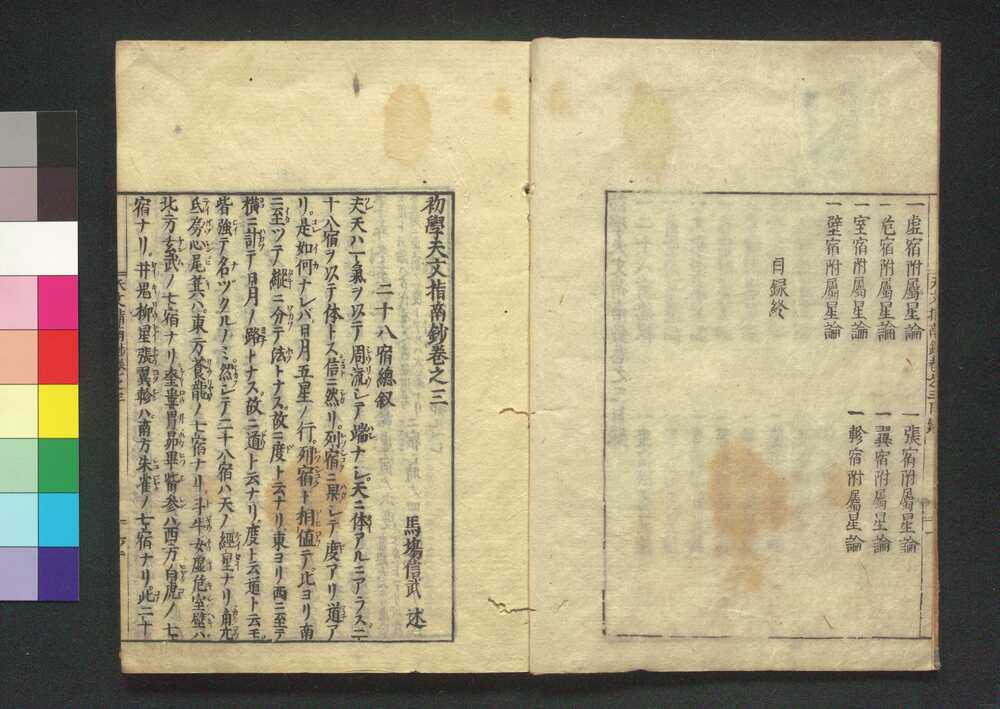 一虚宿附屬星論
一危宿附屬星論
一室宿附屬星論
一壁宿附屬星論
一張宿附屬星論
一翼宿附屬星論
一軫宿附屬星論
目録終
初學天文指南鈔巻之三
馬場信武 述
二十八宿總叙
夫天ハ一氣ヲ以テ周流シテ端ナシ天ニ体アルニアラス二
十八宿ヲ以テ体トス信ニ然リ列宿ニ果シテ度アリ道ア
リ是如何ナレバ日月五星ノ行列宿ト相値テ北ヨリ南
ニ至ツテ縱ニ分テ法トナス故ニ度ト云ナリ東ヨリ西ニ至テ
横ニ計テ日月ノ路トナス故ニ道ト云ナリ度ト云道ト云モ
皆強テ名ヅクルノミ然シテ二十八宿ハ天ノ經星ナリ角亢
氐房心尾箕ハ東方蒼龍ノ七宿ナリ斗牛女虚危室壁ハ
北方玄武ノ七宿ナリ奎婁胃昴畢觜参ハ西方白虎ノ七
宿ナリ井鬼柳星張翼軫ハ南方朱雀ノ七宿ナリ此二十